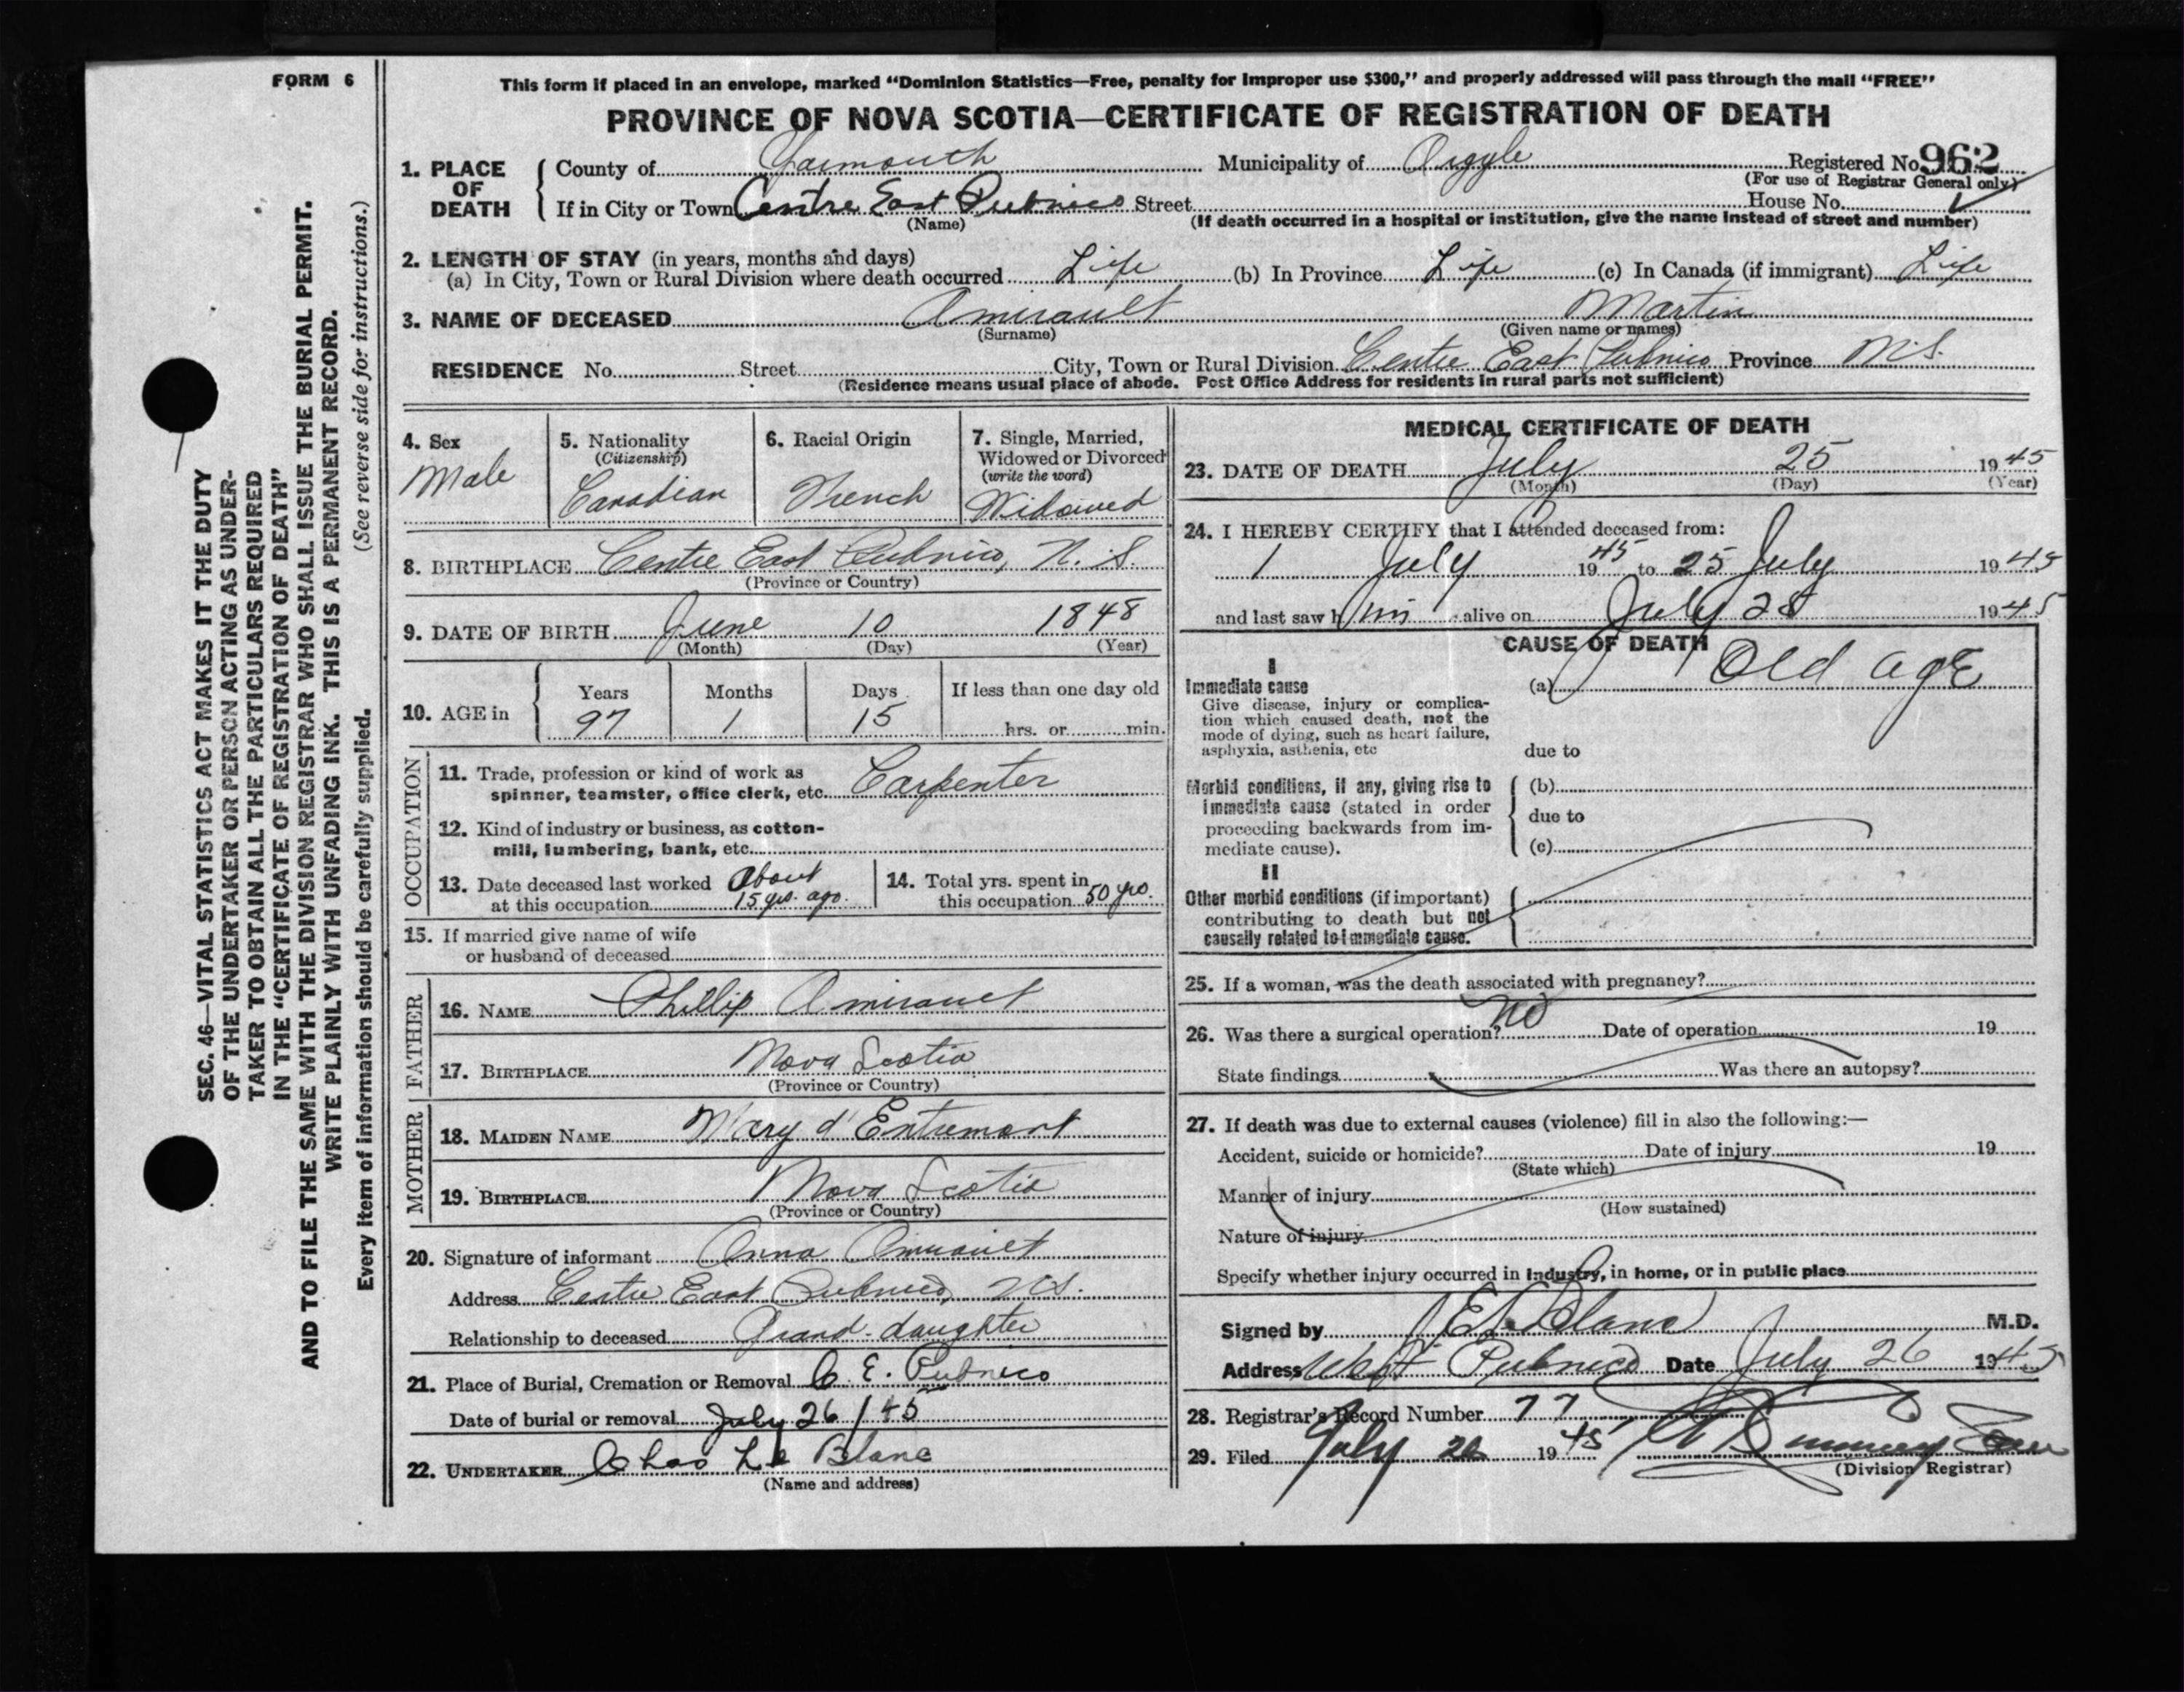 FORM 6
This form if placed in an envelope, marked “Dominion Statistics—Free, penalty for improper use $300,” and properly addressed will pass through the mail “FREE”
PROVINCE OF NOVA SCOTIA—CERTIFICATE OF REGISTRATION OF DEATH
SEC. 46—VITAL STATISTICS ACT MAKES IT THE DUTY
OF THE UNDERTAKER OR PERSON ACTING AS UNDER-
TAKER TO OBTAIN ALL THE PARTICULARS REQUIRED
IN THE “CERTIFICATE OF REGISTRATION OF DEATH”
AND TO FILE THE SAME WITH THE DIVISION REGISTRAR WHO SHALL ISSUE THE BURIAL PERMIT.
WRITE PLAINLY WITH UNFADING INK. THIS IS A PERMANENT RECORD.
Every item of information should be carefully supplied. (See reverse side for instructions.)
1. PLACE OF DEATH
County of Yarmouth Municipality of Argyle Registered No. 962
(For use of Registrar General only)
If in City or Town Centre East Pubnico Street House No.
(Name) (If death occurred in a hospital or institution, give the name instead of street and number)
2. LENGTH OF STAY (in years, months and days)
(a) In City, Town or Rural Division where death occurred Life (b) In Province Life (c) In Canada (if immigrant) Life
3. NAME OF DECEASED Amirault Martin
(Surname) (Given name or names)
RESIDENCE No. Street City, Town or Rural Division Centre East Pubnico Province N.S.
(Residence means usual place of abode. Post Office Address for residents in rural parts not sufficient)
4. Sex
Male
5. Nationality
(Citizenship)
Canadian
6. Racial Origin
French
7. Single, Married,
Widowed or Divorced
(write the word)
Widowed
8. BIRTHPLACE Centre East Pubnico, N.S.
(Province or Country)
9. DATE OF BIRTH June 10 1848
(Month) (Day) (Year)
10. AGE in
Years Months Days If less than one day old
97 1 15 hrs. or min.
OCCUPATION
11. Trade, profession or kind of work as
spinner, teamster, office clerk, etc. Carpenter
12. Kind of industry or business, as cotton-
mill, lumbering, bank, etc.
13. Date deceased last worked About
at this occupation 15 yrs. ago.
14. Total yrs. spent in
this occupation 50 yrs.
15. If married give name of wife
or husband of deceased
FATHER
16. NAME Phillip Amirault
17. BIRTHPLACE Nova Scotia
(Province or Country)
MOTHER
18. MAIDEN NAME Mary d'Entremont
19. BIRTHPLACE Nova Scotia
(Province or Country)
20. Signature of informant Anna Amirault
Address Centre East Pubnico, N.S.
Relationship to deceased Grand-daughter
21. Place of Burial, Cremation or Removal C. E. Pubnico
Date of burial or removal July 26/45
22. UNDERTAKER Chas Le Blanc
(Name and address)
MEDICAL CERTIFICATE OF DEATH
23. DATE OF DEATH July 25 1945
(Month) (Day) (Year)
24. I HEREBY CERTIFY that I attended deceased from:
1 July 1945 to 25 July 1945
and last saw him alive on July 25 1945
CAUSE OF DEATH
I
Immediate cause
Give disease, injury or complica-
tion which caused death, not the
mode of dying, such as heart failure,
asphyxia, asthenia, etc
(a) Old age
due to
Morbid conditions, if any, giving rise to
immediate cause (stated in order
proceeding backwards from im-
mediate cause).
(b)
due to
(c)
II
Other morbid conditions (if important)
contributing to death but not
causally related to immediate cause.
25. If a woman, was the death associated with pregnancy?
26. Was there a surgical operation? No Date of operation 19
State findings Was there an autopsy?
27. If death was due to external causes (violence) fill in also the following:—
Accident, suicide or homicide? Date of injury 19
(State which)
Manner of injury
(How sustained)
Nature of injury
Specify whether injury occurred in industry, in home, or in public place
Signed by LeBlanc M.D.
Address West Pubnico Date July 26 1945
28. Registrar's Record Number 77
29. Filed July 26 1945
(Division Registrar)